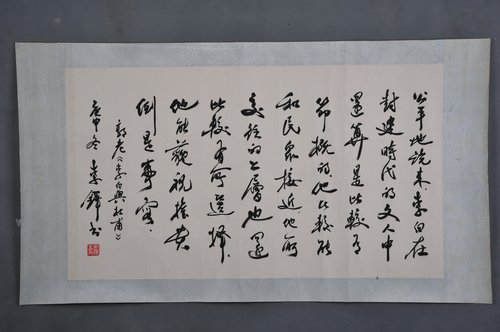 公平地说来李白在
封建時代的文人中
還算是比較有
節概的他比較能
和民衆接近他所
交往的上層也還
比較有所選擇、
他能藐視權貴
倒是事實、
郭老《李白與杜甫》
庚申冬 李鐸书